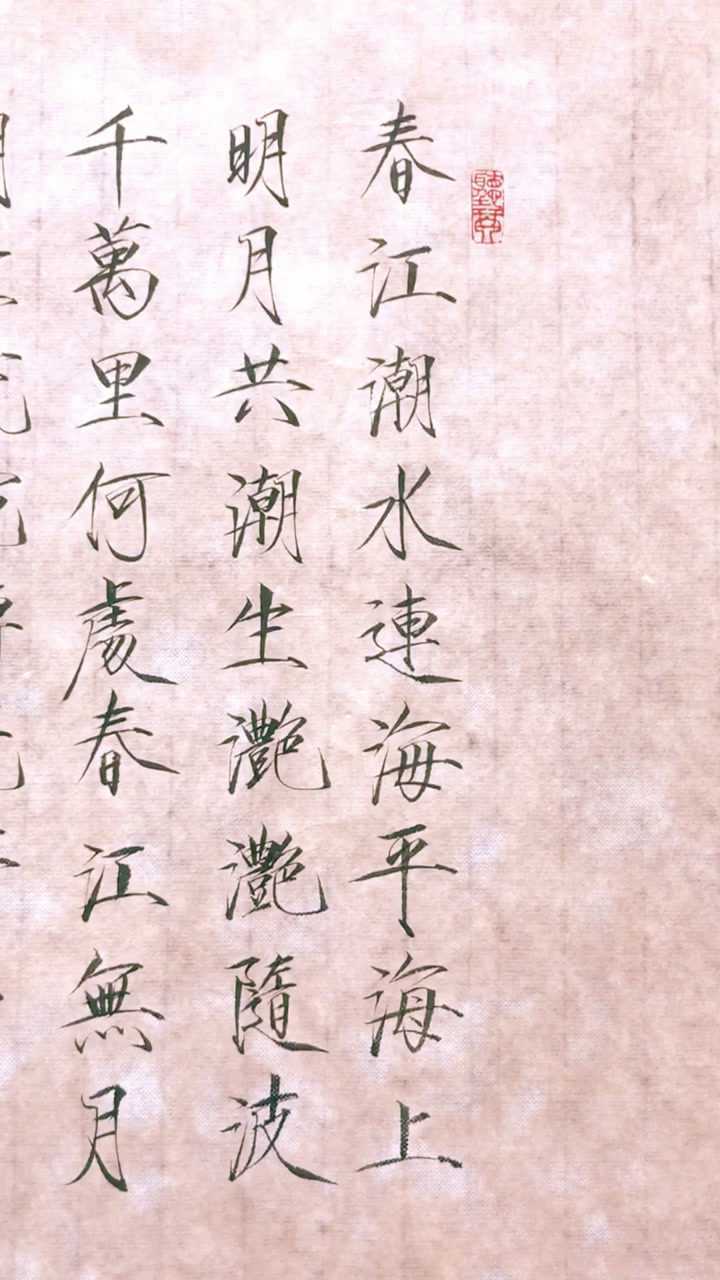 春江潮水連海平海上
明月共潮生灧灧隨波
千萬里何處春江無月